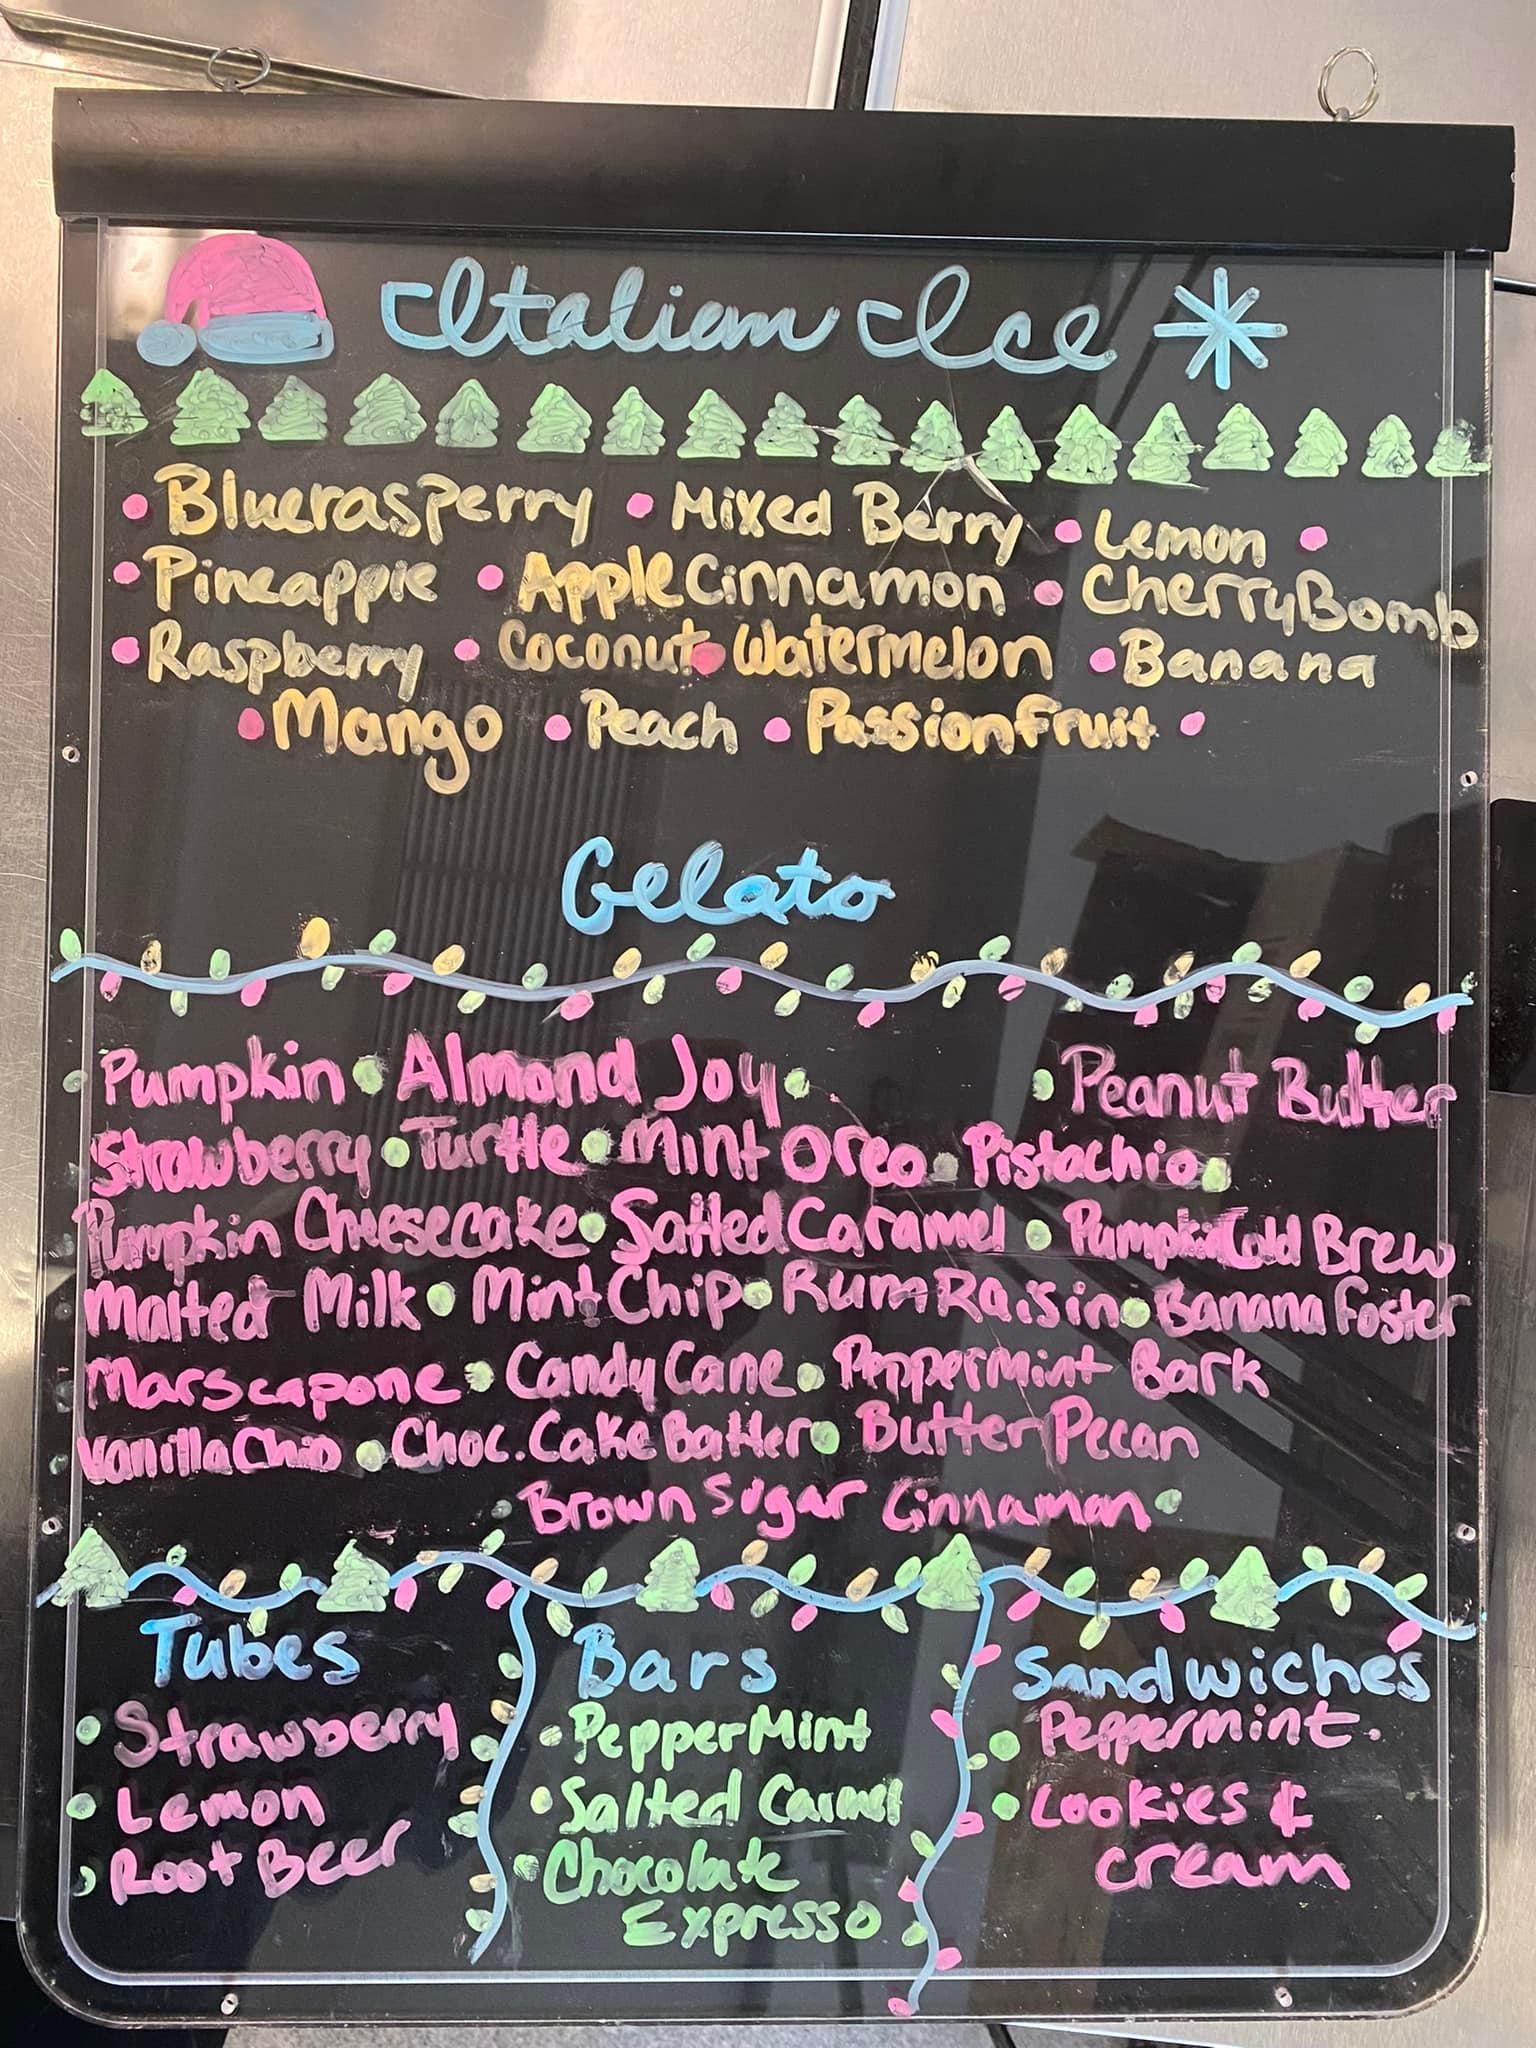 Italian Ice
• Bluerasperry • Mixed Berry • Lemon •
• Pineapple • Apple Cinnamon • Cherry Bomb
• Raspberry • Coconut • Watermelon • Banana
• Mango • Peach • Passionfruit •
Gelato
• Pumpkin • Almond Joy • • Peanut Butter
Strawberry • Turtle • Mint Oreo • Pistachio •
Pumpkin Cheesecake • Salted Caramel • Pumpkin Cold Brew
Malted Milk • Mint Chip • Rum Raisin • Banana Foster
Marscapone • Candy Cane • Peppermint Bark
Vanilla Chip • Choc. Cake Batter • Butter Pecan
• Brown Sugar Cinnamon •
Tubes
• Strawberry •
• Lemon
• Root Beer
Bars
• PepperMint
• Salted Carmel
• Chocolate
Expresso
Sandwiches
• Peppermint
• Cookies &
Cream